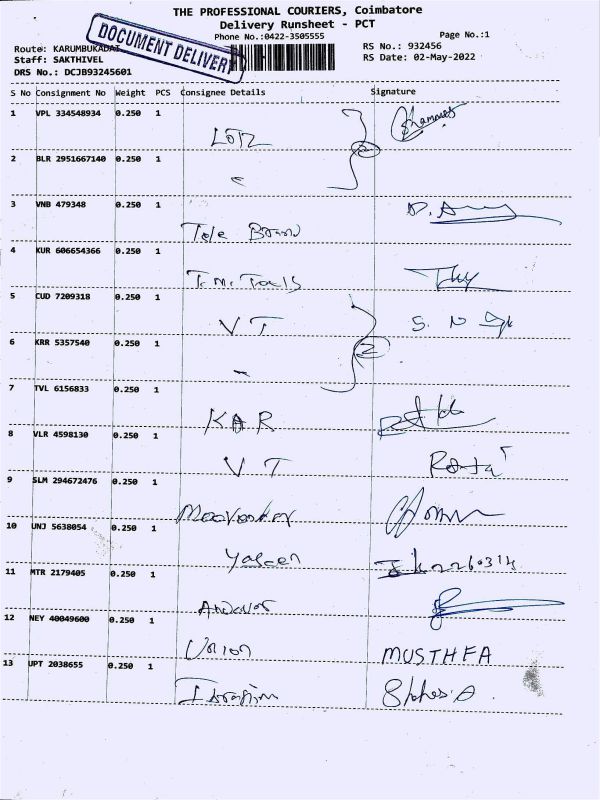 THE PROFESSIONAL COURIERS, Coimbatore
Delivery Runsheet - PCT
DOCUMENT DELIVERY
Phone No.:0422-3505555 Page No.:1
Route: KARUMBUKADAI RS No.: 932456
Staff: SAKTHIVEL RS Date: 02-May-2022
DRS No.: DCJB93245601
S No Consignment No Weight PCS Consignee Details Signature
1 VPL 334548934 0.250 1
LOTZ
2
2 BLR 2951667140 0.250 1
3 VNB 479348 0.250 1
Tele Brand
4 KUR 606654366 0.250 1
T.M. Tools
5 CUD 7209318 0.250 1
V T
2
6 KRR 5357540 0.250 1
7 TVL 6156833 0.250 1
KAR
8 VLR 4598130 0.250 1
V T
9 SLM 294672476 0.250 1
10 UNJ 5638054 0.250 1
Yaseen
11 MTR 2179405 0.250 1
12 NEY 40049600 0.250 1
Union MUSTHFA
13 UPT 2038655 0.250 1
Ibragim